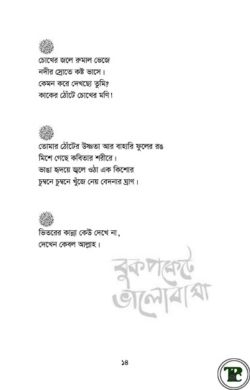 চোখের জলে রুমাল ভেজে
নদীর স্রোতে কষ্ট ভাসে।
কেমন করে দেখছো তুমি?
কাকের ঠোঁটে চোখের মণি!
তোমার ঠোঁটের উষ্ণতা আর বাহারি ফুলের রঙ
মিশে গেছে কবিতার শরীরে।
ভাঙা হৃদয়ে জ্বলে ওঠা এক কিশোর
চুম্বনে চুম্বনে খুঁজে নেয় বেদনার ঘ্রাণ।
ভিতরের কান্না কেউ দেখে না,
দেখেন কেবল আল্লাহ।
বুকপকেটে
ভালোবাসা
১৪